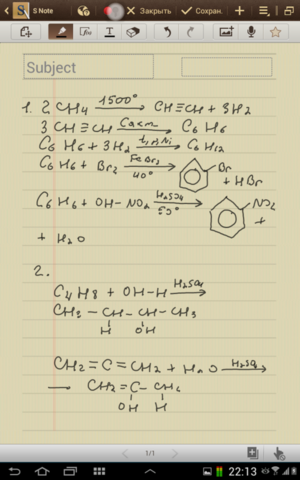 S Note
Закрыть
Сохран.
Subject
1. 2 CH4 1500° → CH≡CH + 3H2
3 CH≡CH Cакт → C6H6
C6H6 + 3H2 t,p,Ni → C6H12
C6H6 + Br2 FeBr3 40° → Br + HBr
C6H6 + OH-NO2 H2SO4 50° → NO2 +
+ H2O
2.
C4H8 + OH-H H2SO4 →
CH3 - CH - CH - CH3
H OH
CH2=C=CH2 + H2O H2SO4 →
→ CH2=C-CH2
OH H
1/1
22:13